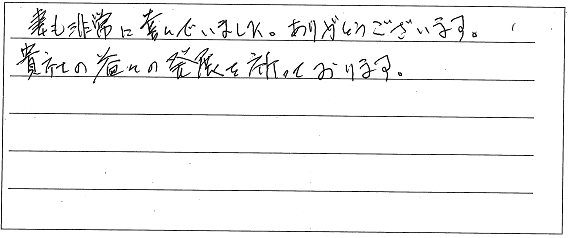 妻も非常に喜んでいました。ありがとうございます。
貴社の益々の発展を祈っております。